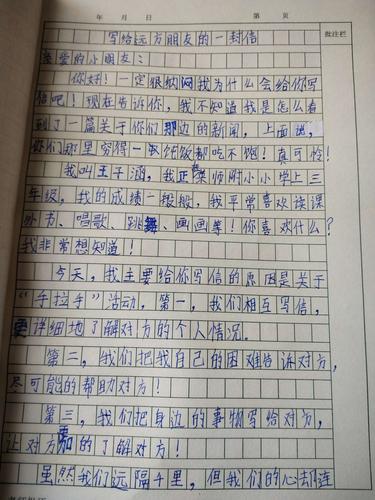 年 月 日 第 页
批注栏
写给远方朋友的一封信
亲爱的小朋友：
你好！一定很纳闷我为什么会给你写
信吧！现在告诉你，我不知道我是怎么看
到了一篇关于你们那边的新闻，上面说，
你们那里穷得一顿饭都吃不饱！真可怜！
我叫王子涵，我正 师附小小学上三
年级，我的成绩一般般，我平常喜欢读课
外书、唱歌、跳舞、画画等！你喜欢什么？
我非常想知道！
今天，我主要给你写信的原因是关于
“手拉手”活动，第一，我们相互写信，
更详细地了解对方的个人情况。
第二，我们把我自己的困难告诉对方，
尽可能的帮助对方！
第三，我们把身边的事物写给对方，
让对方 的了解对方！
虽然我们远隔千里，但我们的心却连